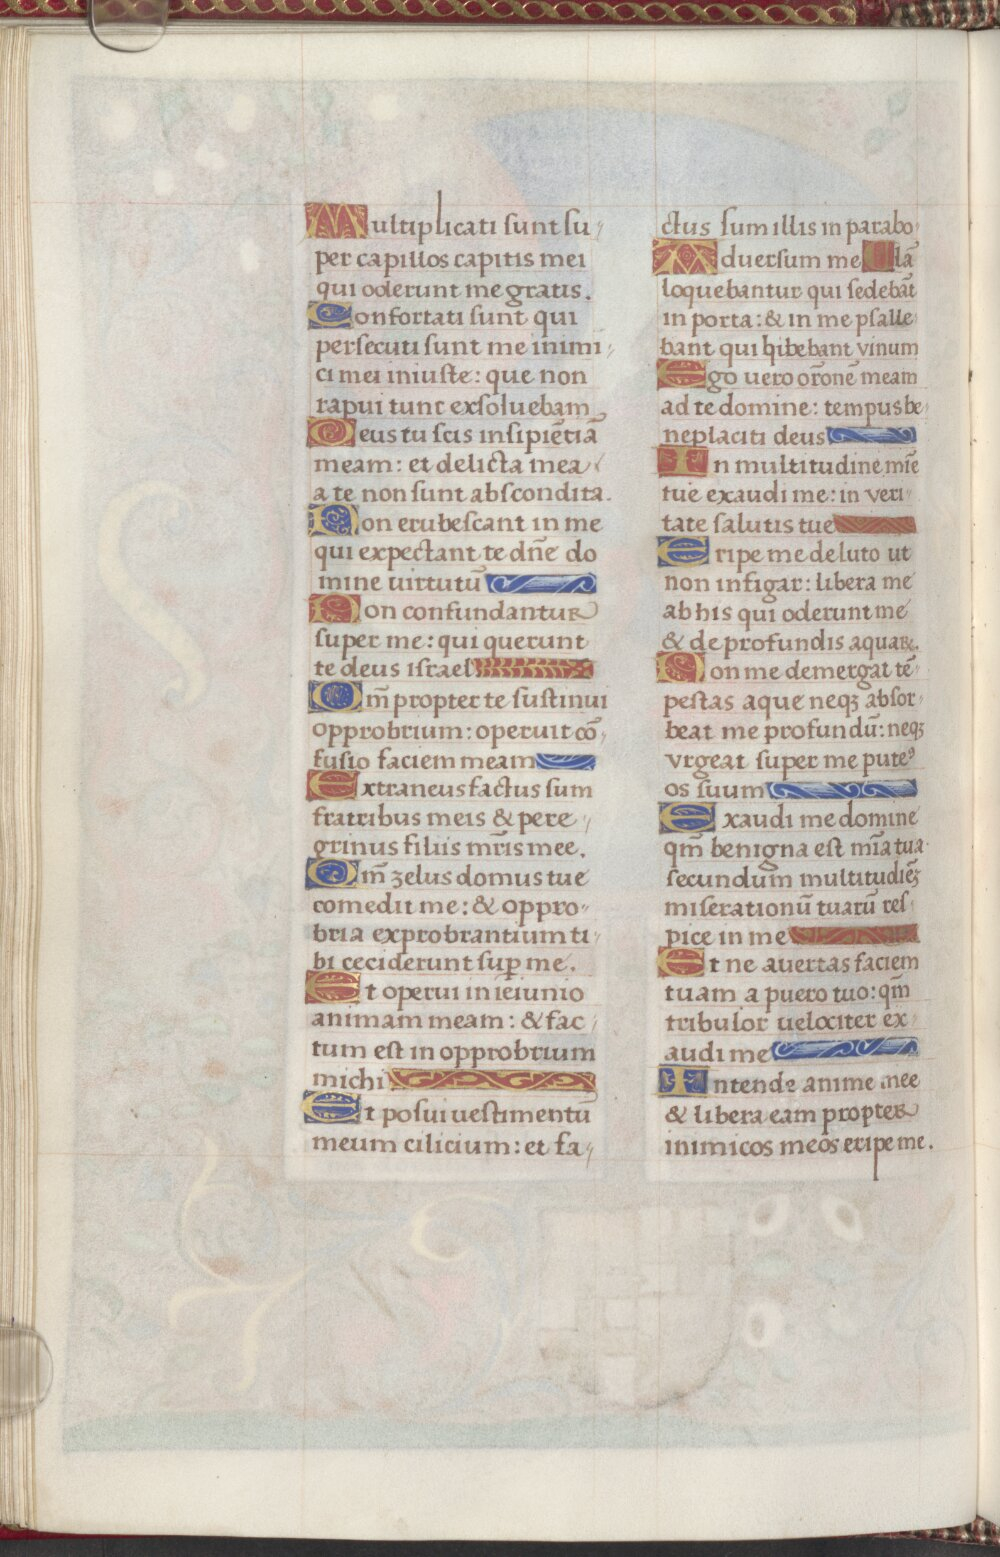 Multiplicati sunt su-
per capillos capitis mei
qui oderunt me gratis.
Confortati sunt qui
persecuti sunt me inimi-
ci mei iniuste: que non
rapui tunc exsoluebam
Deus tu scis insipiẽtiã
meam: et delicta mea
a te non sunt abscondita.
Non erubescant in me
qui expectant te dñe do
mine uirtutũ
Non confundantur
super me: qui querunt
te deus israel
Qm̃ propter te sustinui
opprobrium: operuit cõ-
fusio faciem meam
Extraneus factus sum
fratribus meis & pere-
grinus filiis mr̃is mee.
Qm̃ zelus domus tue
comedit me: & oppro-
bria exprobrantium ti-
bi ceciderunt sup̱ me.
Et operui in ieiunio
animam meam: & fac-
tum est in opprobrium
michi
Et posui uestimentũ
meum cilicium: et fa-
ctus sum illis in parabo-
Aduersum me lã
loquebantur qui sedebãt
in porta: & in me psalle-
bant qui bibebant vinum
Ego uero orõnẽ meam
ad te domine: tempus be-
neplaciti deus
In multitudine mĩe
tue exaudi me: in veri-
tate salutis tue
Eripe me de luto ut
non infigar: libera me
ab his qui oderunt me
& de profundis aquaꝝ.
Non me demergat tẽ-
pestas aque neqꝫ absor-
beat me profundũ: neqꝫ
vrgeat super me puteꝰ
os suum
Exaudi me domine
qm̃ benigna est mĩa tua
secundum multitudiẽꝫ
miserationũ tuarũ res-
pice in me
Et ne auertas faciem
tuam a puero tuo: qm̃
tribulor uelociter ex-
audi me
Intende anime mee
& libera eam propter
inimicos meos eripe me.